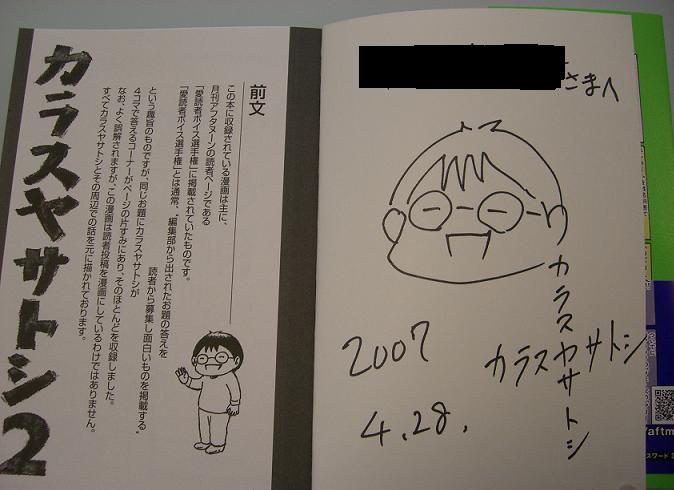 カラスヤサトシ2
前文
この本に収録されている漫画は主に、
月刊アフタヌーンの読者ページである
「愛読者ボイス選手権」に掲載されていたものです。
「愛読者ボイス選手権」とは通常、“編集部から出されたお題の答えを
読者から募集し面白いものを掲載する”
という趣旨のものですが、同じお題にカラスヤサトシが
4コマで答えるコーナーがページの片すみにあり、そのほとんどを収録しました。
なお、よく誤解されますが、この漫画は読者投稿を漫画にしているわけではありません。
すべてカラスヤサトシとその周辺での話を元に描かれております。
さまへ
カラスヤサトシ
カラスヤサトシ
2007
4.28.
/aftm